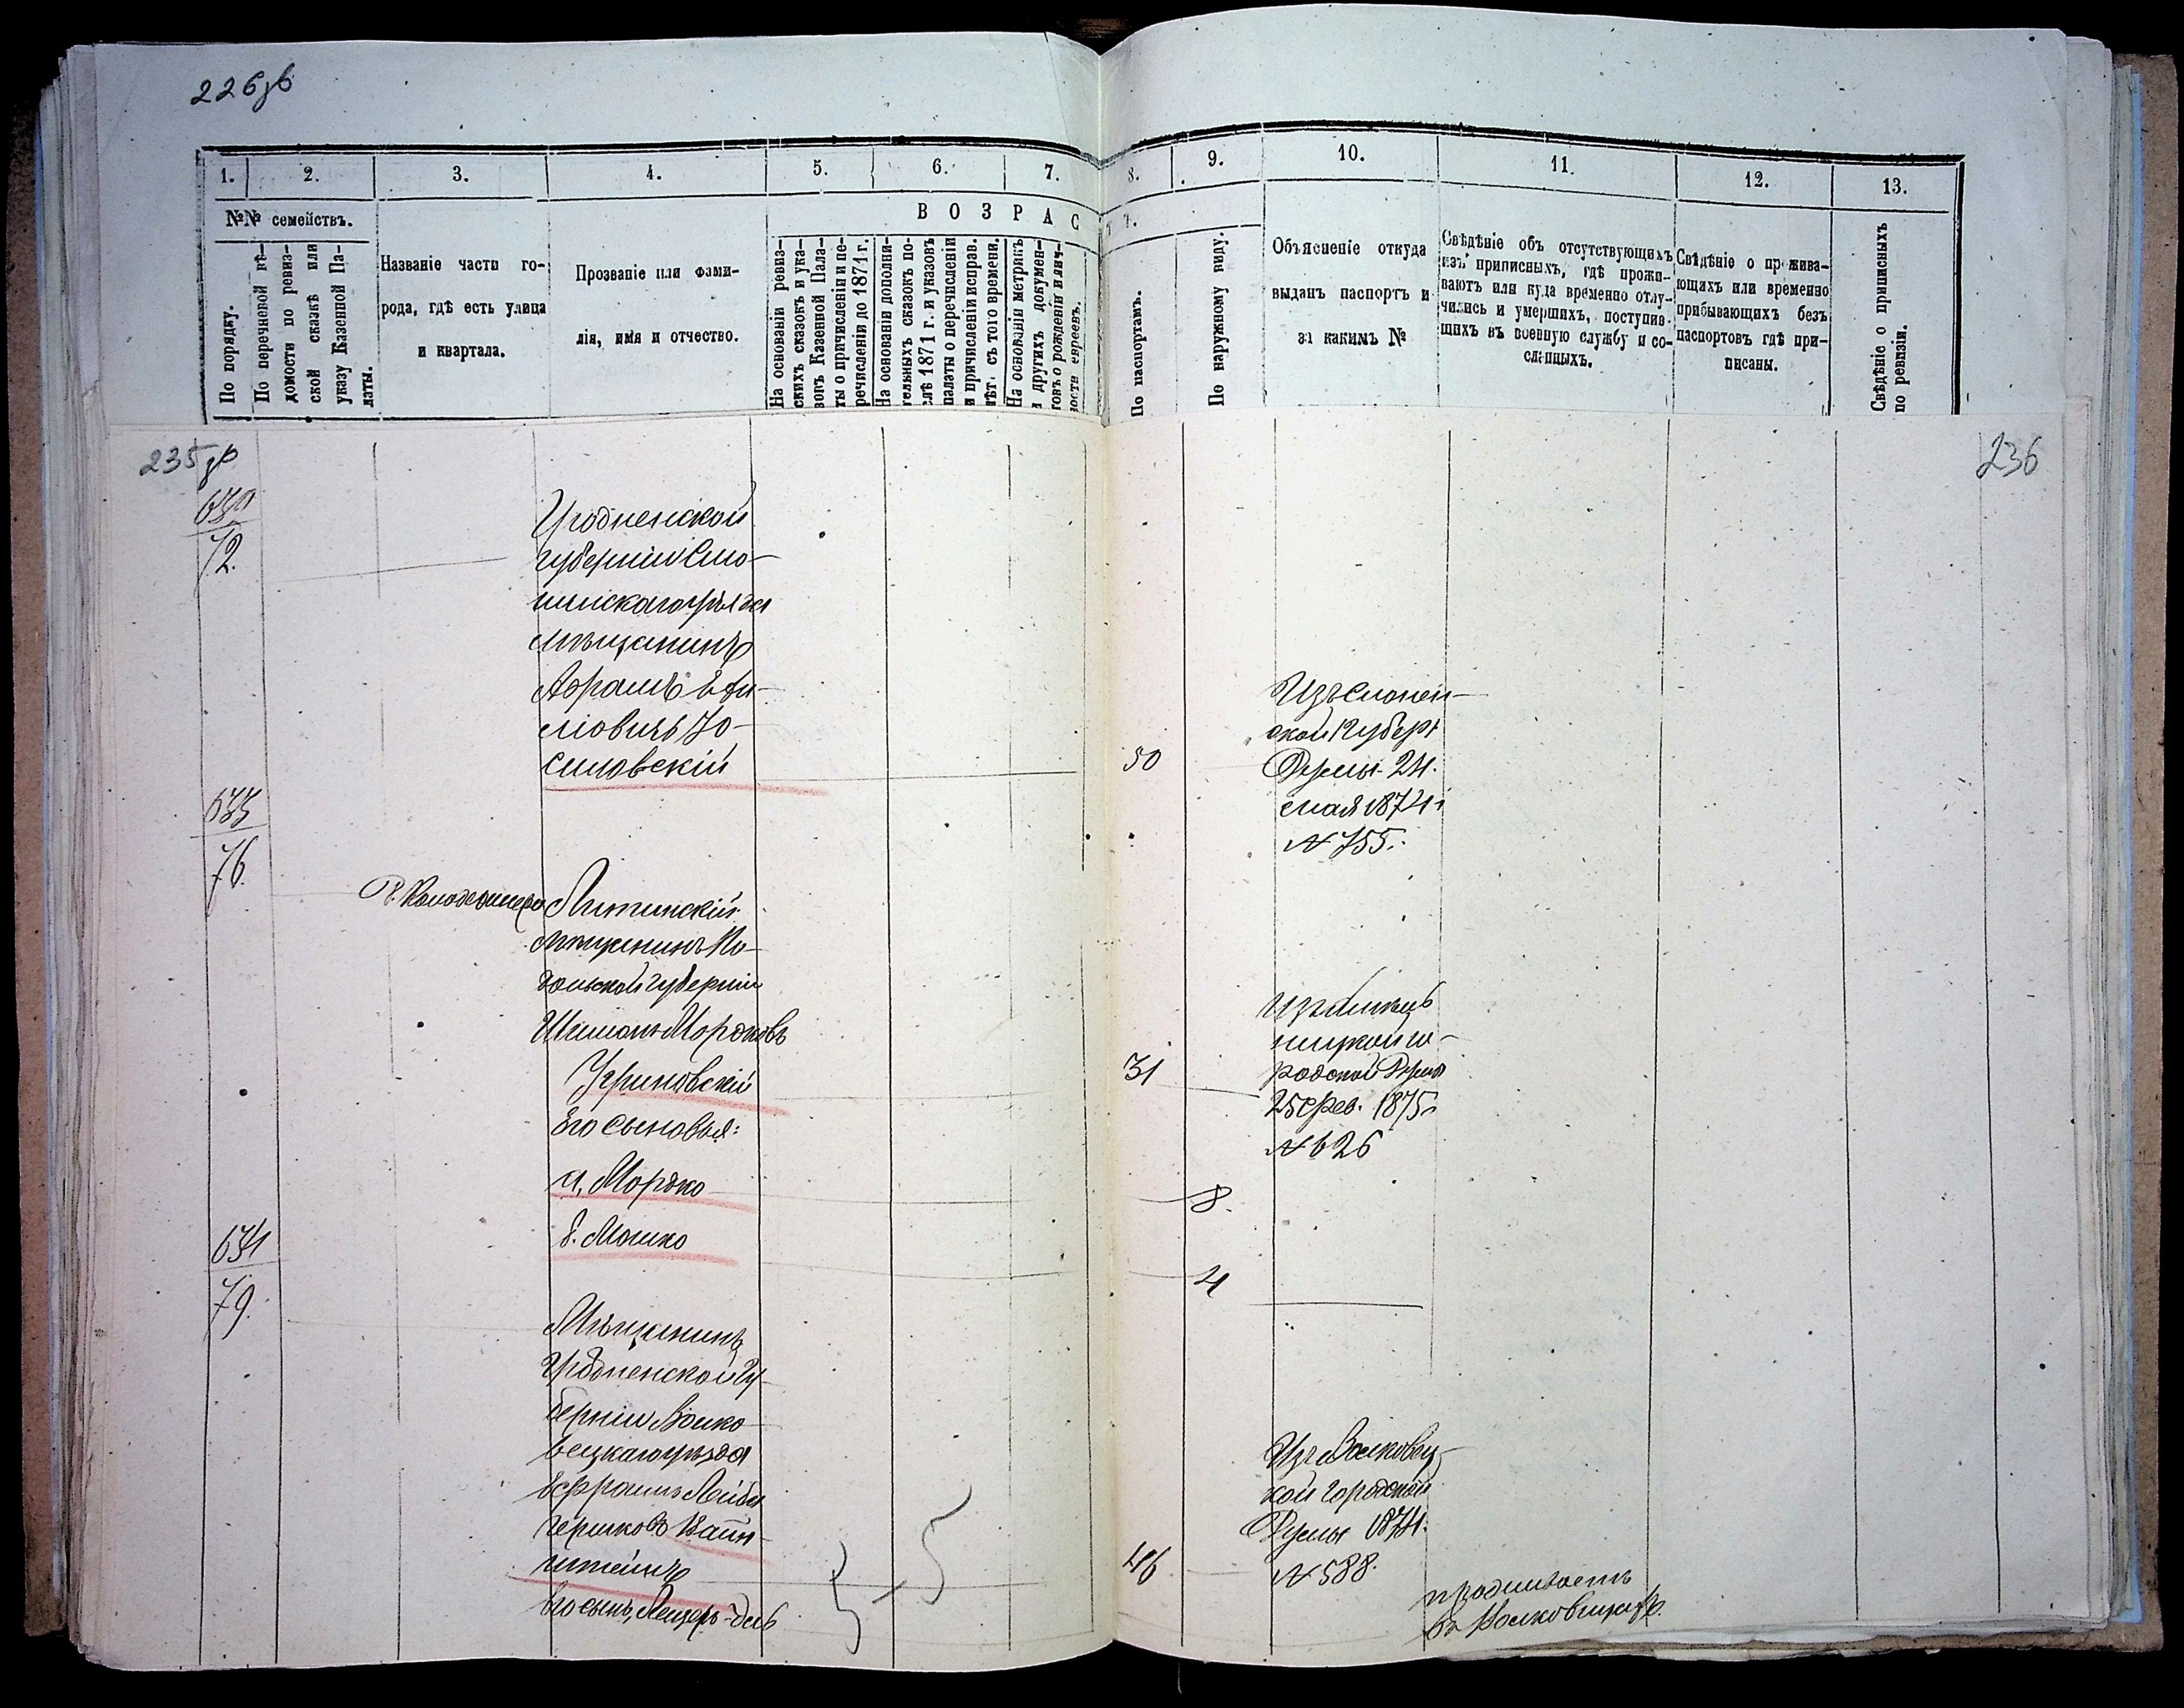 226зв
1. 2. 3. 4. 5. 6. 7. 8. 9. 10. 11. 12. 13.
№№ семействъ.
По порядку.
По перечневой вѣ-
домости по ревиз-
ской сказкѣ или
указу Казенной Па-
латы.
Названіе части го-
рода, гдѣ есть улица
и квартала.
Прозваніе или фами-
лія, имя и отчество.
ВОЗРАСТЪ.
На основаніи ревиз-
скихъ сказокъ и ука-
зовъ Казенной Пала-
ты о причисленіи и пе-
речисленіи до 1871 г.
На основаніи дополни-
тельныхъ сказокъ по-
слѣ 1871 г. и указовъ
палаты о перечисленіи
и причисленіи исправ.
лѣт. съ того времени.
На основаніи метрикъ
и других докумен-
товъ о рожденіи и лич-
ности евреевъ.
По паспортамъ.
По наружному виду.
Объясненіе откуда
выданъ паспортъ и
за какимъ №
Свѣдѣніе объ отсутствующихъ
изъ приписныхъ, гдѣ прожи-
ваютъ или куда временно отлу-
чились и умершихъ, поступив-
шихъ въ военную службу и со-
сланныхъ.
Свѣдѣніе о прожива-
ющихъ или временно
прибывающихъ безъ
паспортовъ гдѣ при-
писаны.
Свѣдѣніе о приписныхъ
по ревизіи.
235зв
236
72.
Гродненской
губерніи Сло-
нимскаго уѣзда
мѣщанинъ
Абрамъ
Словскій
50
Изъ Слоним-
ской Губер
Думы 24.
мая 1874 г
№ 755.
633
76.
Литинскій
мѣщанинъ По-
дольской губерніи
Шимонъ Мордковъ
Угриновскій
31
родской Думы
25 Фев. 1875 г
№ 626
Его сыновья:
а, Мордко
8.
б. Мошко
4
634
79.
Мѣщанинъ
Гродненской Гу-
берніи Волко-
вецкаго уѣзда
Ефроимъ Лейба
Гершковъ Вайн-
штейнъ
46
Изъ Волковец-
кой городской
Думы 1874.
№ 588.
Его сынъ,
5 - 5
проживаетъ